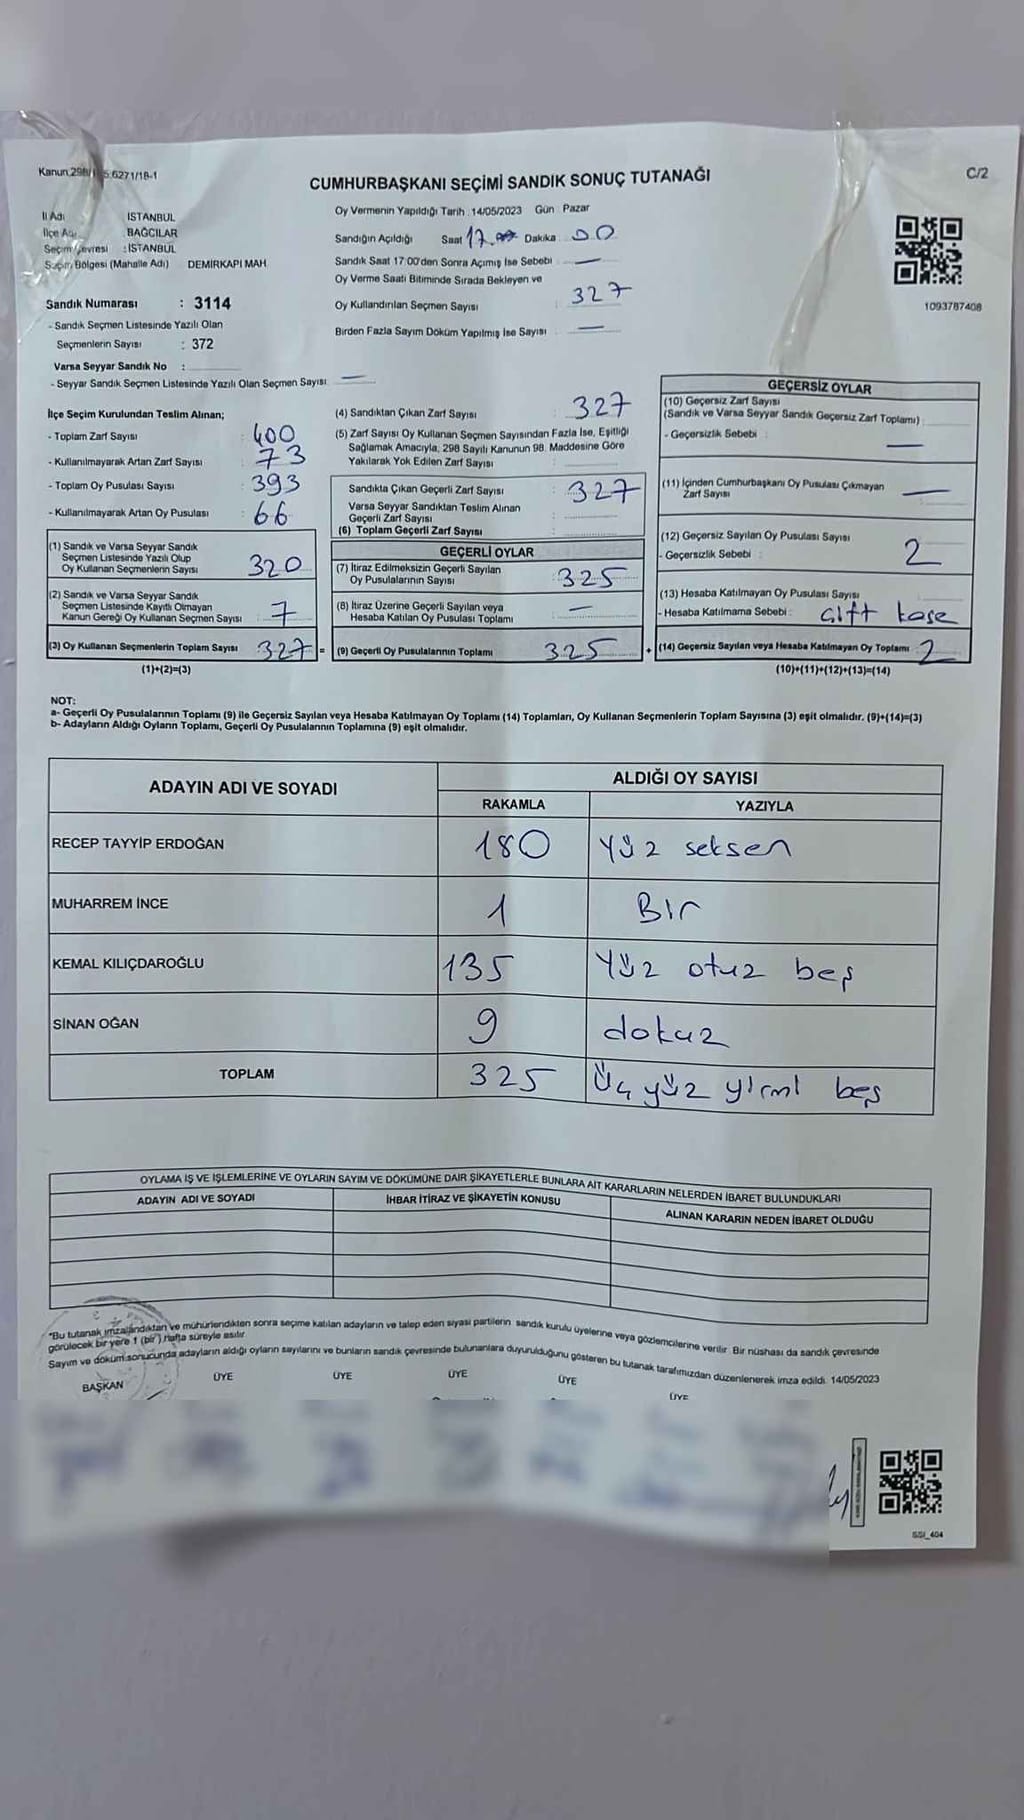 Kanun.298/ 5:6271/18-1
CUMHURBAŞKANI SEÇİMİ SANDIK SONUÇ TUTANAĞI
C/2
İl Adı İSTANBUL
İlçe Adı BAĞCILAR
Seçim Çevresi : İSTANBUL
Seçim Bölgesi (Mahalle Adı) DEMİRKAPI MAH
Sandık Numarası : 3114
- Sandık Seçmen Listesinde Yazılı Olan
Seçmenlerin Sayısı : 372
Varsa Seyyar Sandık No :
- Seyyar Sandık Seçmen Listesinde Yazılı Olan Seçmen Sayısı: —
Oy Vermenin Yapıldığı Tarih : 14/05/2023 Gün : Pazar
Sandığın Açıldığı Saat 17 Dakika 00
Sandık Saat 17:00'den Sonra Açımış İse Sebebi : —
Oy Verme Saati Bitiminde Sırada Bekleyen ve
Oy Kullandırılan Seçmen Sayısı : 327
Birden Fazla Sayım Döküm Yapılmış İse Sayısı : —
1093787408
İlçe Seçim Kurulundan Teslim Alınan;
- Toplam Zarf Sayısı : 400
- Kullanılmayarak Artan Zarf Sayısı : 73
- Toplam Oy Pusulası Sayısı : 393
- Kullanılmayarak Artan Oy Pusulası : 66
(1) Sandık ve Varsa Seyyar Sandık
Seçmen Listesinde Yazılı Olup
Oy Kullanan Seçmenlerin Sayısı 320
(2) Sandık ve Varsa Seyyar Sandık
Seçmen Listesinde Kayıtlı Olmayan
Kanun Gereği Oy Kullanan Seçmen Sayısı : 7
(3) Oy Kullanan Seçmenlerin Toplam Sayısı 327 =
(1)+(2)=(3)
(4) Sandıktan Çıkan Zarf Sayısı : 327
(5) Zarf Sayısı Oy Kullanan Seçmen Sayısından Fazla İse, Eşitliği
Sağlamak Amacıyla, 298 Sayılı Kanunun 98. Maddesine Göre
Yakılarak Yok Edilen Zarf Sayısı :
Sandıkta Çıkan Geçerli Zarf Sayısı : 327
Varsa Seyyar Sandıktan Teslim Alınan
Geçerli Zarf Sayısı :
(6) Toplam Geçerli Zarf Sayısı :
GEÇERLİ OYLAR
(7) İtiraz Edilmeksizin Geçerli Sayılan
Oy Pusulalarının Sayısı 325
(8) İtiraz Üzerine Geçerli Sayılan veya
Hesaba Katılan Oy Pusulası Toplamı —
(9) Geçerli Oy Pusulalarının Toplamı 325 +
GEÇERSİZ OYLAR
(10) Geçersiz Zarf Sayısı
(Sandık ve Varsa Seyyar Sandık Geçersiz Zarf Toplamı) :
- Geçersizlik Sebebi : —
(11) İçinden Cumhurbaşkanı Oy Pusulası Çıkmayan
Zarf Sayısı —
(12) Geçersiz Sayılan Oy Pusulası Sayısı
- Geçersizlik Sebebi : 2
(13) Hesaba Katılmayan Oy Pusulası Sayısı
- Hesaba Katılmama Sebebi : çift kaşe
(14) Geçersiz Sayılan veya Hesaba Katılmayan Oy Toplamı 2
(10)+(11)+(12)+(13)=(14)
NOT:
a- Geçerli Oy Pusulalarının Toplamı (9) ile Geçersiz Sayılan veya Hesaba Katılmayan Oy Toplamı (14) Toplamları, Oy Kullanan Seçmenlerin Toplam Sayısına (3) eşit olmalıdır. (9)+(14)=(3)
b- Adayların Aldığı Oyların Toplamı, Geçerli Oy Pusulalarının Toplamına (9) eşit olmalıdır.
ADAYIN ADI VE SOYADI
ALDIĞI OY SAYISI
RAKAMLA YAZIYLA
RECEP TAYYİP ERDOĞAN 180 Yüz seksen
MUHARREM İNCE 1 Bir
KEMAL KILIÇDAROĞLU 135 Yüz otuz beş
SİNAN OĞAN 9 dokuz
TOPLAM 325 Üç yüz yirmi beş
OYLAMA İŞ VE İŞLEMLERİNE VE OYLARIN SAYIM VE DÖKÜMÜNE DAİR ŞİKAYETLERLE BUNLARA AİT KARARLARIN NELERDEN İBARET BULUNDUKLARI
ADAYIN ADI VE SOYADI İHBAR İTİRAZ VE ŞİKAYETİN KONUSU ALINAN KARARIN NEDEN İBARET OLDUĞU
"Bu tutanak imzalandıktan ve mühürlendikten sonra seçime katılan adayların ve talep eden siyasi partilerin sandık kurulu üyelerine veya gözlemcilerine verilir. Bir nüshası da sandık çevresinde
görülecek bir yere 1 (bir) hafta süreyle asılır.
Sayım ve döküm sonucunda adayların aldığı oyların sayılarını ve bunların sandık çevresinde bulunanlara duyurulduğunu gösteren bu tutanak tarafımızdan düzenlenerek imza edildi. 14/05/2023
BAŞKAN ÜYE ÜYE ÜYE ÜYE ÜYE
SSI_404